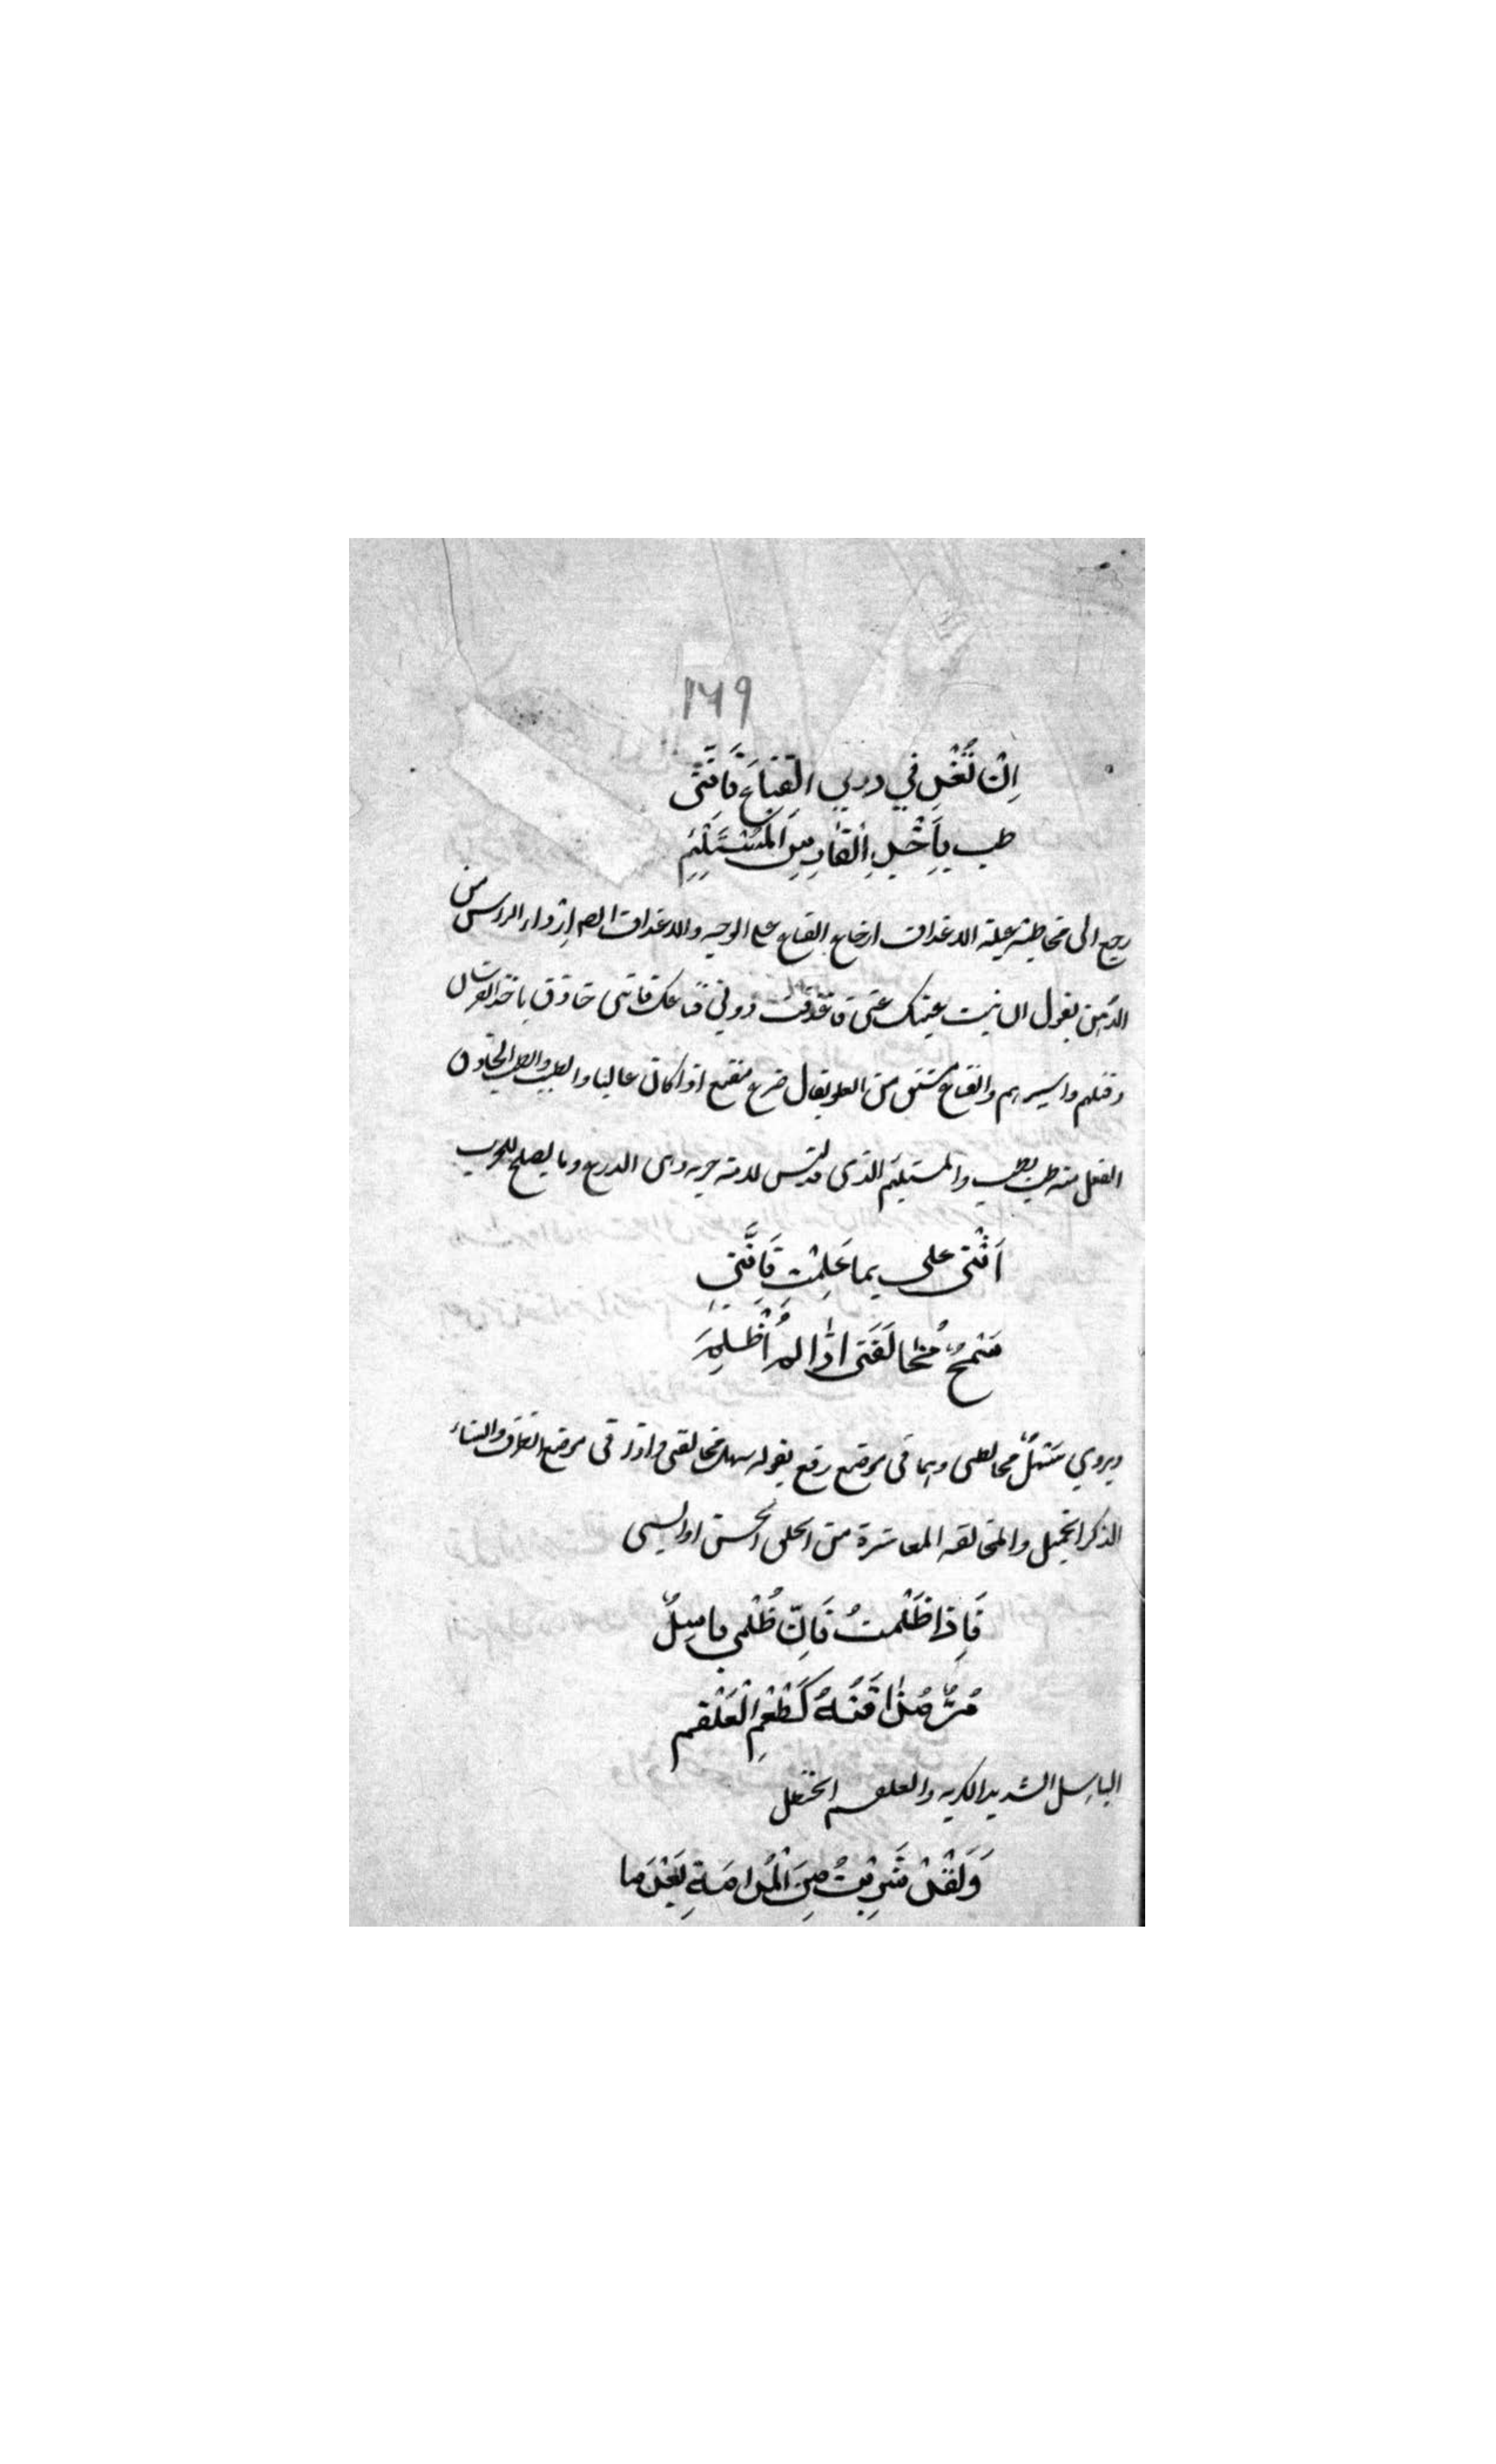 ١٦٩
اِنْ تُغْدِفي دوني القِنَاعَ فَاِنَّنی
طب بِاَخْذِ الفَارِسِ المُسْتَلْئِمِ
رجع الى مخاطبة عبلة الاغداف ارخاع القناع على الوجه والاغداف ارواء الراس من
الدهن يقول ان نبت عينك عنی فاغدفت دونی قناعك فاننی حاذق باخذ الفرسان
وقتلهم واسيرهم والقناع مشتق من العلو يقال ضرع مقنع اذا كان عاليا والطب والطب الحاذق
الفعل منه طب يطب والمستلئم الذی قد لبس لامة حربه وهی الدرع وما يصلح للحرب
اَثْنی علی بما عَلِمْتِ فَاِنَّنی
سَمْحٌ مُخالَقَتی اذا لم اُظْلَمِ
ويروي سَهْلٌ مخالطتی وهما فی موضع رفع بقوله سهل مخالقتی واذا فی موضع الظرف والثناء
الذكر الجميل والمخالقه المعاشرة من الخلق الحسن او السیی
فَاِذا ظَلَمتُ فَاِنّ ظُلْمی باسِلٌ
مُرٌّ مَذاقَتُهُ كَطَعْمِ الْعَلْقَمِ
الباسل الشديد الكريه والعلقم الحنظل
وَلَقَدْ شَرِبْتُ مِنَ الْمُدامَةِ بَعْدَما